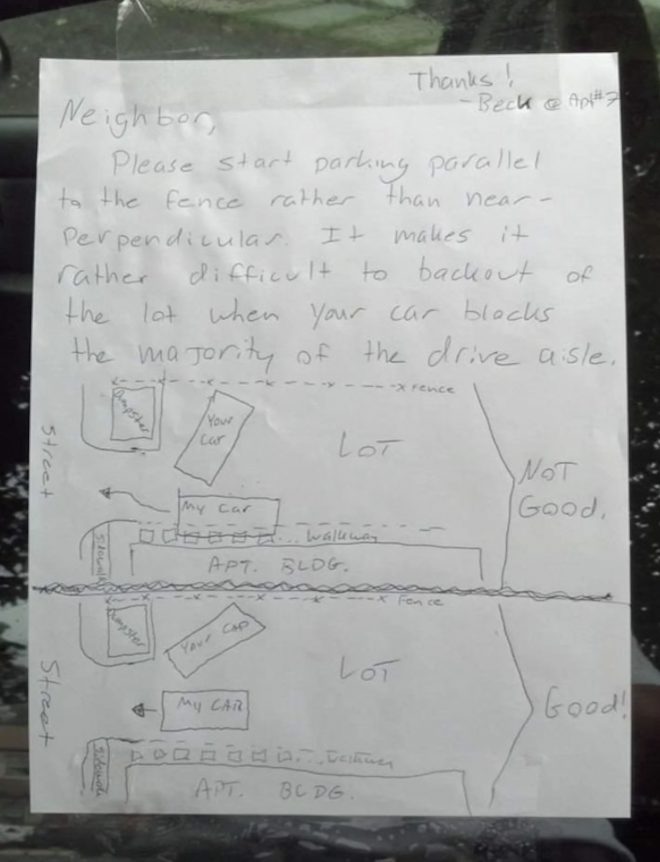 Thanks!
- Beck @ Apt#7
Neighbor,
Please start parking parallel
to the fence rather than near-
perpendicular. It makes it
rather difficult to backout of
the lot when your car blocks
the majority of the drive aisle.
x Fence
Dumpster
Your
Car
LOT
Street
NOT
GOOD.
My Car
... Walkway
Sidewalk
APT. BLDG.
x Fence
Dumpster
YOUR CAR
LOT
Street
Good!
MY CAR
... Walkway
Sidewalk
APT. BLDG.